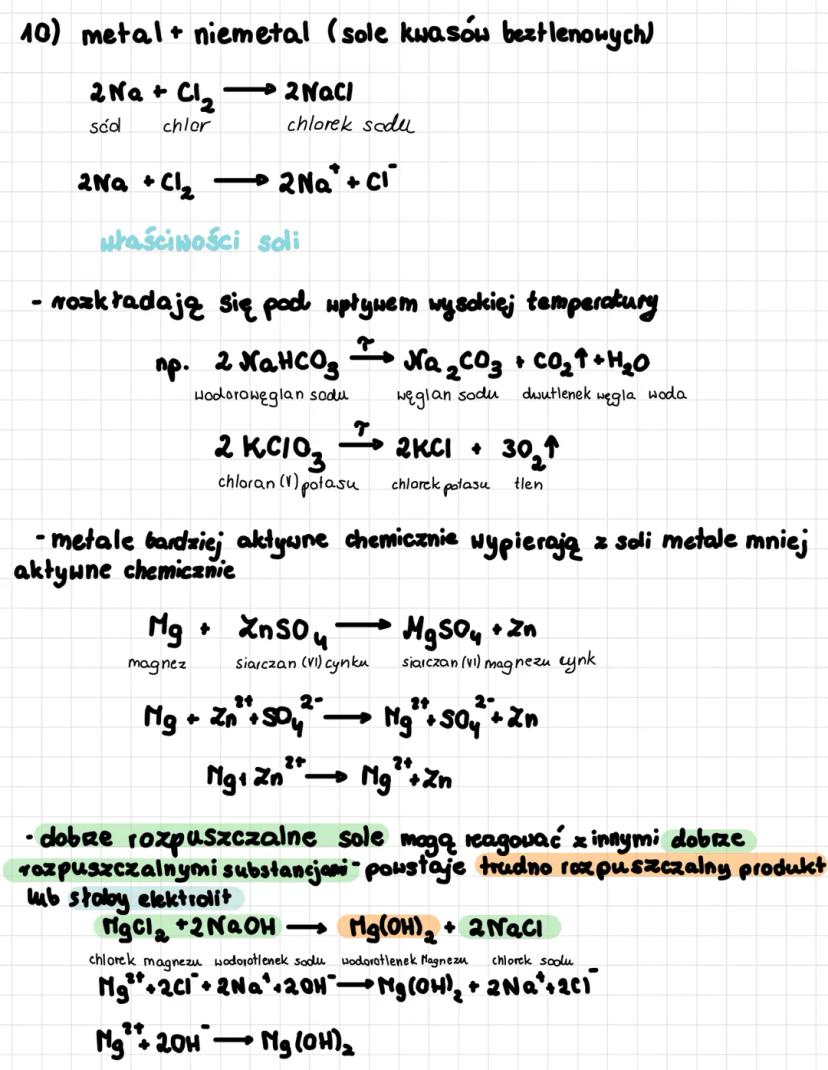 10) metal + niemetal (sole kwasów beztlenowych)
2Na + Cl₂ → 2NaCl
sód chlor chlorek sodu
2Na + Cl₂ → 2Na⁺ + Cl⁻
właściwości soli
- rozkładają się pod wpływem wysokiej temperatury
np. 2 NaHCO₃ →(T) Na₂CO₃ + CO₂↑ + H₂O
wodorowęglan sodu węglan sodu dwutlenek węgla woda
2 KClO₃ →(T) 2KCl + 3O₂↑
chloran (V) potasu chlorek potasu tlen
- metale bardziej aktywne chemicznie wypierają z soli metale mniej
aktywne chemicznie
Mg + ZnSO₄ → MgSO₄ + Zn
magnez siarczan (VI) cynku siarczan (VI) magnezu cynk
Mg + Zn²⁺ + SO₄²⁻ → Mg²⁺ + SO₄²⁻ + Zn
Mg + Zn²⁺ → Mg²⁺ + Zn
- dobrze rozpuszczalne sole mogą reagować z innymi dobrze
rozpuszczalnymi substancjami - powstaje trudno rozpuszczalny produkt
lub słaby elektrolit
MgCl₂ + 2NaOH → Mg(OH)₂ + 2NaCl
chlorek magnezu wodorotlenek sodu wodorotlenek Magnezu chlorek sodu
Mg²⁺ + 2Cl⁻ + 2Na⁺ + 2OH⁻ → Mg(OH)₂ + 2Na⁺ + 2Cl⁻
Mg²⁺ + 2OH⁻ → Mg(OH)₂